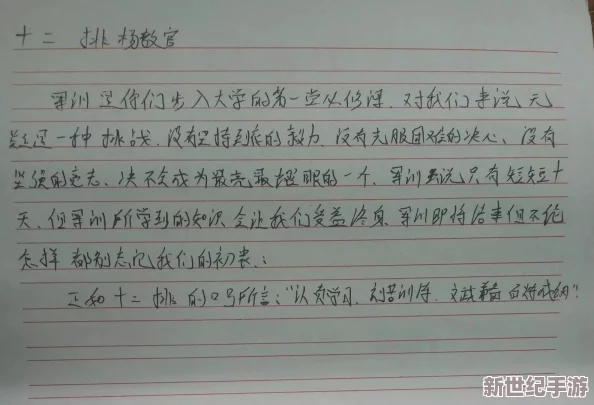 十二 排 杨教官
军训是你们步入大学的第一堂必修课.对我们来说无
疑是一种挑战.没有坚持到底的毅力.没有克服困难的决心、没有
坚强的意志、决不会成为最亮最耀眼的一个.军训虽说只有短短十
天.但军训所学到的知识会让我们受益终身.军训即将结束但不论
怎样都别忘记我们的初衷.:
正如十二排的口号所言:"认真学习.刻苦训练.文武兼备
新世纪手游